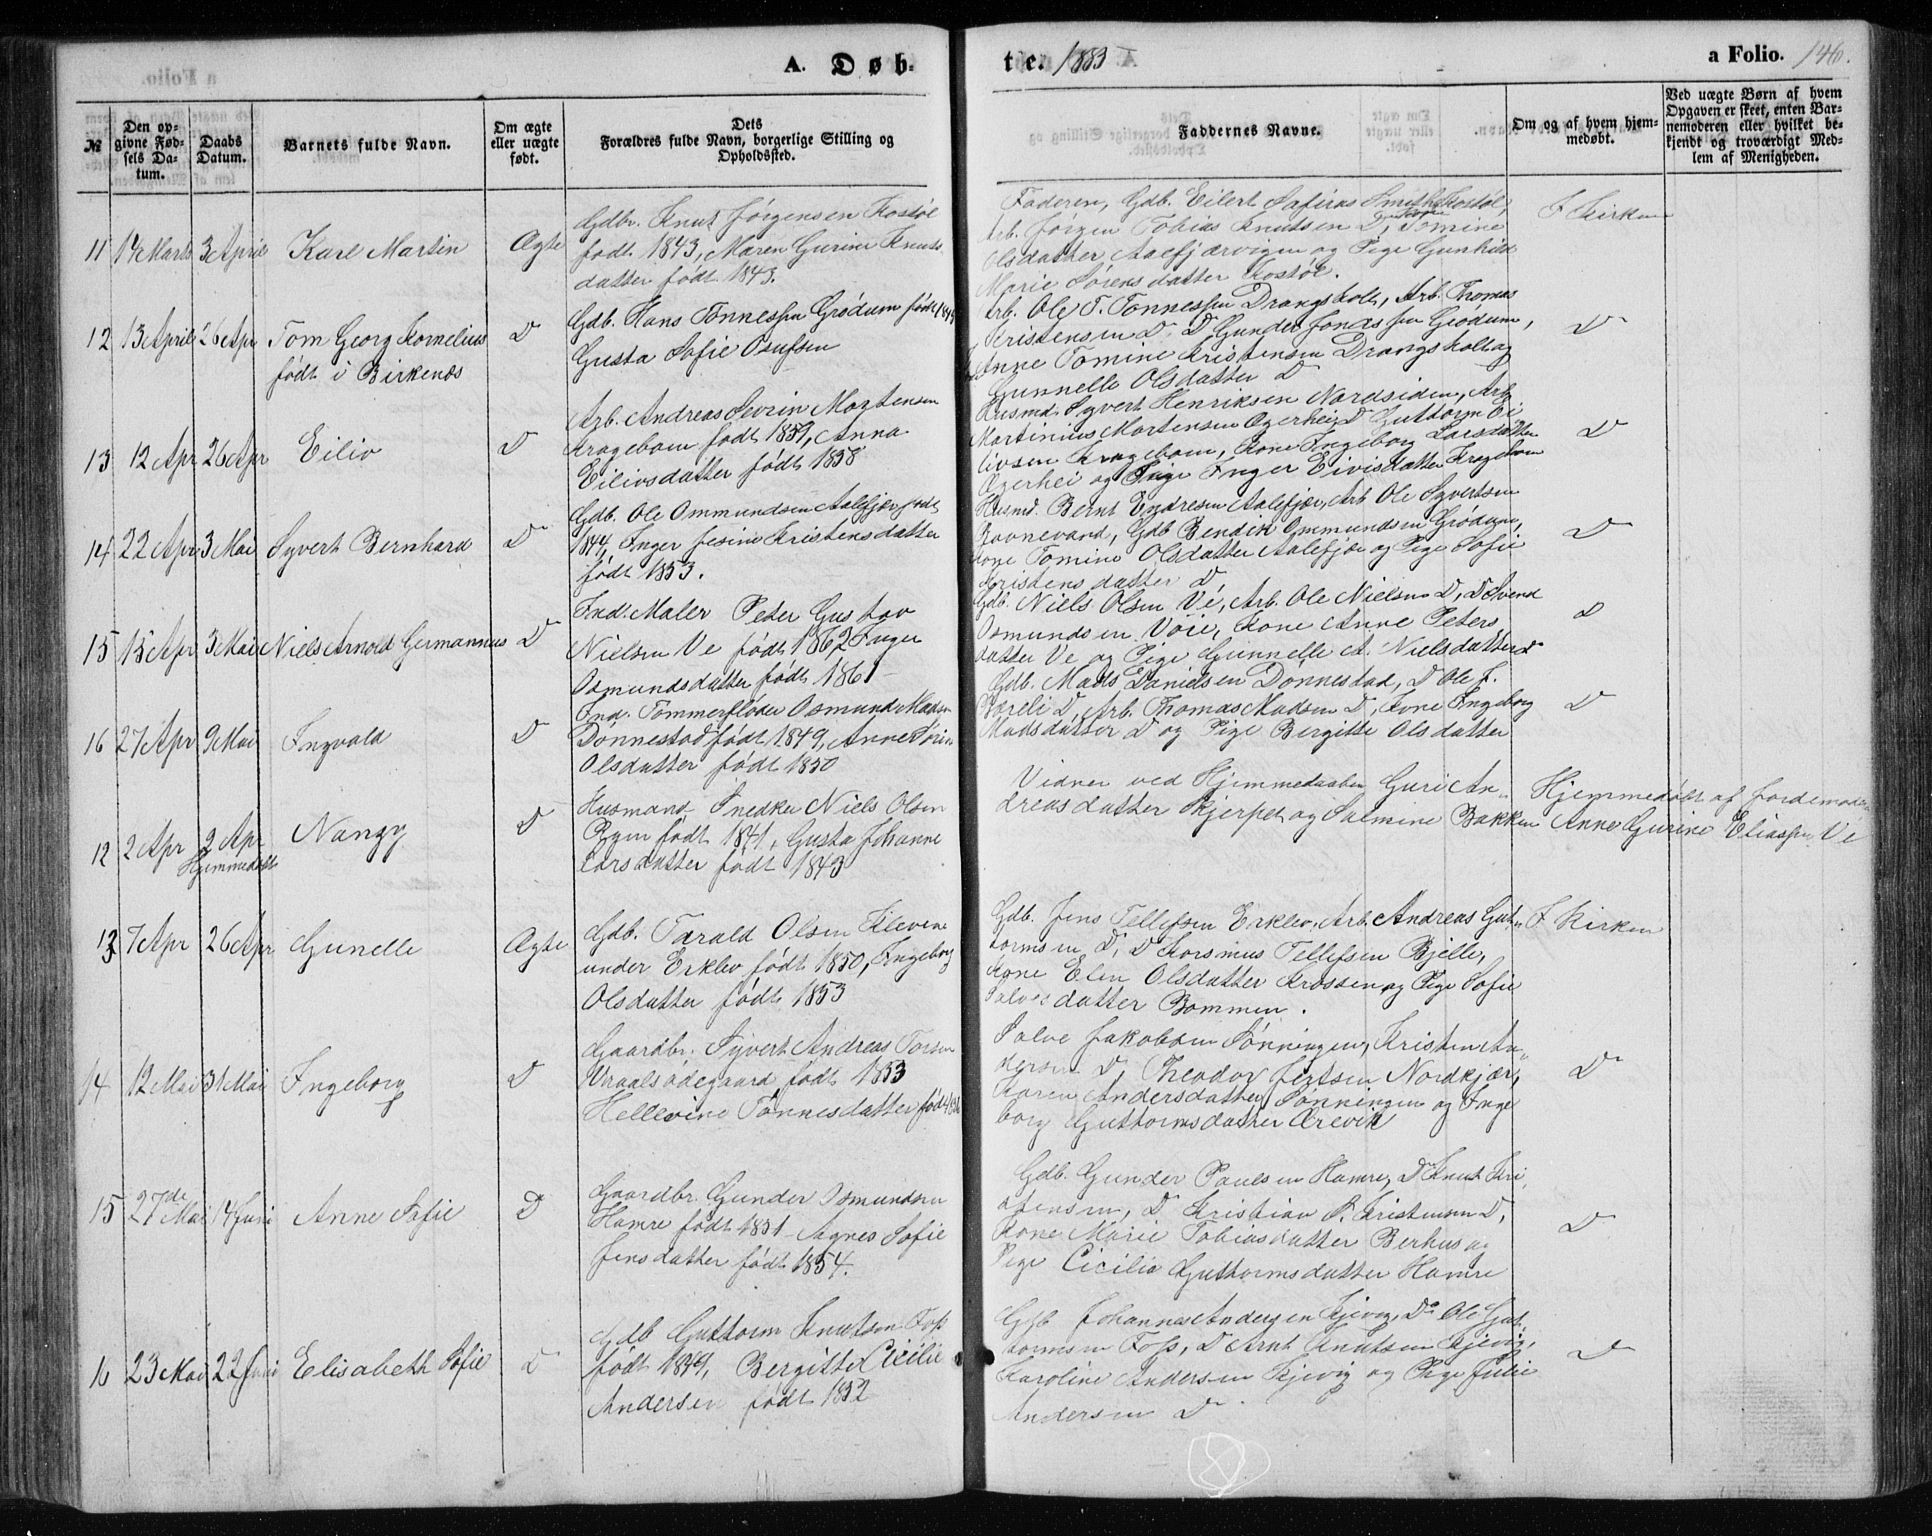 A. Døb-
te. 1883
a Folio. 146.
№
Den op-
givne Fød-
sels Da-
tum.
Daabs
Datum.
Barnets fulde Navn.
Om ægte
eller uægte
født.
Dets
Forældres fulde Navn, borgerlige Stilling og
Opholdssted.
Faddernes Navne.
Om og af hvem hjem-
medøbt.
Ved uægte Børn af hvem
Opgaven er skeet, enten Bar-
nemoderen eller hvilket be-
kjendt og troværdigt Med-
lem af Menigheden.
11 14 Marts 3 April Karl Martin Ægte
Gdbr. Knut Jørgensen Kostøl
født 1843, Maren Gurine Knuts
datter født 1843.
Faderen, Gdb. Eilert Safiras Smith Kostøl,
Arb. Jørgen Tobias Knutsen D, Tomine
Olsdatter Aalefjærvigen og Pige Gunhild
Marie Sørensdatter Kostøl.
I Kirken
12 13 April 26 Apr Tom Georg Kornelius D
født i Birkenæs
Gdb. Hans Tønnessen Grødum født
Gusta Sofie Osufsen
Arb. Ole T. Tønnessen Drangsholt, Arb. Thomas
Kristensen D. D Gunder Jondssen Grødum,
Anne Tomine Kristensen Drangsholt og
Gunnelle Olsdatter D
D
13 12 Apr 26 Apr Eiliv D
Arb. Andreas Sevrin Mortensen
Kragebom født 1859, Anna
Eilivsdatter født 1858
Husmd. Syvert Henriksen Nordsiden, Arb
Martinius Mortensen Ogerhei D Guttorm Ei
livsen Kragebom, Kone Ingeborg Larsdatter
Ogerhei og Pige Inger Eivisdatter Kragebom
D
14 22 Apr 3 Mai Syvert Bernhard D
Gdb. Ole Ommundsen Aalefjær født
1844, Inger Jesine Kristensdatter
født 1853.
Husmd. Bernt Endresen Aalefjær, Arb Ole Syvertsen
Ravnevand, Gdb Bendik Ommundsen Grødum,
Kone Tomine Olsdatter Aalefjær og Pige Sofie
Kristensdatter D
D
15 15 Apr 3 Mai Niels Arnold Germannus D
Ind. Maler Peter Gustav
Nielsen Ve født 1862 Inger
Osmundsdatter født 1861
Gdb. Niels Olsen Ve, Arb. Ole Nielsen D, D Svend
Osmundsen Voie, Kone Anne Peters
datter Ve og Pige Gunnelle A. Nielsdatter D
D
16 27 Apr 9 Mai Ingvald D
Ind. Tømmerfløder Osmund Madsen
Dønnestad født 1849, Anne Sørine
Olsdatter født 1850
Gdb. Mads Danielsen Dønnestad, D Ole J.
Væreli D, Arb. Thomas Madsen D, Kone Ingeborg
Madsdatter D og Pige Bergitte Olsdatter
D
12 2 Apr 2 Apr Nanzy D
Hjemmedøbt
Husmand Snedker Niels Olsen
født 1841, Gusta Johanne
Larsdatter født 1843
Vidner ved Hjemmedaaben Guri An-
dreasdatter Skjerpet og Salmine Bakken
Hjemmedøbt af Jordemoder
Anne Gurine Eliassen Ve
13 7 Apr 26 Apr Gunelle Ægte
Gdb. Tarald Olsen Klevene
under Erklev født 1850, Ingeborg
Olsdatter født 1853
Gdb. Jens Tellefsen Erklev, Arb. Andreas Gut-
tormsen D, D Korsmus Tellefsen Bjelle,
Kone Elen Olsdatter Krossen og Pige Sofie
Salvesdatter Bommen.
I Kirken
14 12 Mai 31 Mai Ingeborg D
Gaardbr. Syvert Andreas Torsen
Vraalsødegaard født 1853
Hellevine Tønnesdatter født
Salve Jakobsen Sønningen, Kristen An-
dersen D, Theodor Jentsen Nordkjær,
Karen Andersdatter Sønningen og Inge
borg Guttormsdatter Ærevik
D
15 27de Mai 14 Juni Anne Sofie D
Gaardbr. Gunder Osmundsen
Hamre født 1851 - Agnes Sofie
Jensdatter født 1854.
Gdb. Gunder Paulsen Hamre, D Knut Kri
stensen, D Kristian P. Kristensen D,
Kone Marie Tobiasdatter Berhus og
Pige Cicilie Guttormsdatter Hamre
D
16 23 Mai 22 Juni Elisabeth Sofie D
Gdb Guttorm Knutsen Foss
født 1849, Bergitte Cicilie
Andersen født 1852
Gdb Johannes Andersen Kjevig, Do Ole Gut
tormsen Foss, D Arnt Knutsen Kjevig,
Karoline Andersen Kjevig og Pige Julie
Andersen D.
D